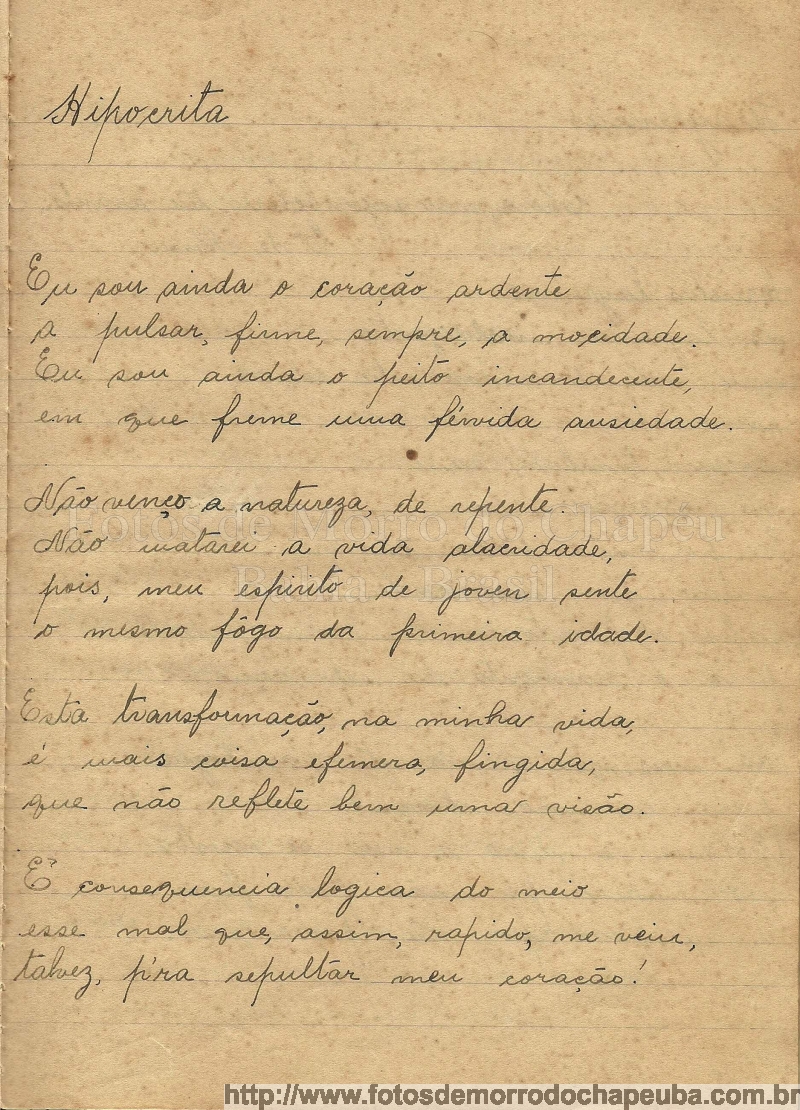 Hipocrita
Eu sou ainda o coração ardente
a pulsar, firme, sempre, a mocidade.
Eu sou ainda o peito incandecente,
em que freme uma férvida ansiedade.
Não venço a natureza, de repente.
Não matarei a vida alacridade,
pois, meu espirito de joven sente
o mesmo fôgo da primeira idade.
Esta transformação, na minha vida,
é mais coisa efemera, fingida,
que não reflete bem uma visão.
É consequencia logica do meio
esse mal que, assim, rapido, me veiu,
talvez, p'ra sepultar meu coração!
Fotos de Morro do Chapéu
Bahia - Brasil
http://www.fotosdemorrodochapeuba.com.br